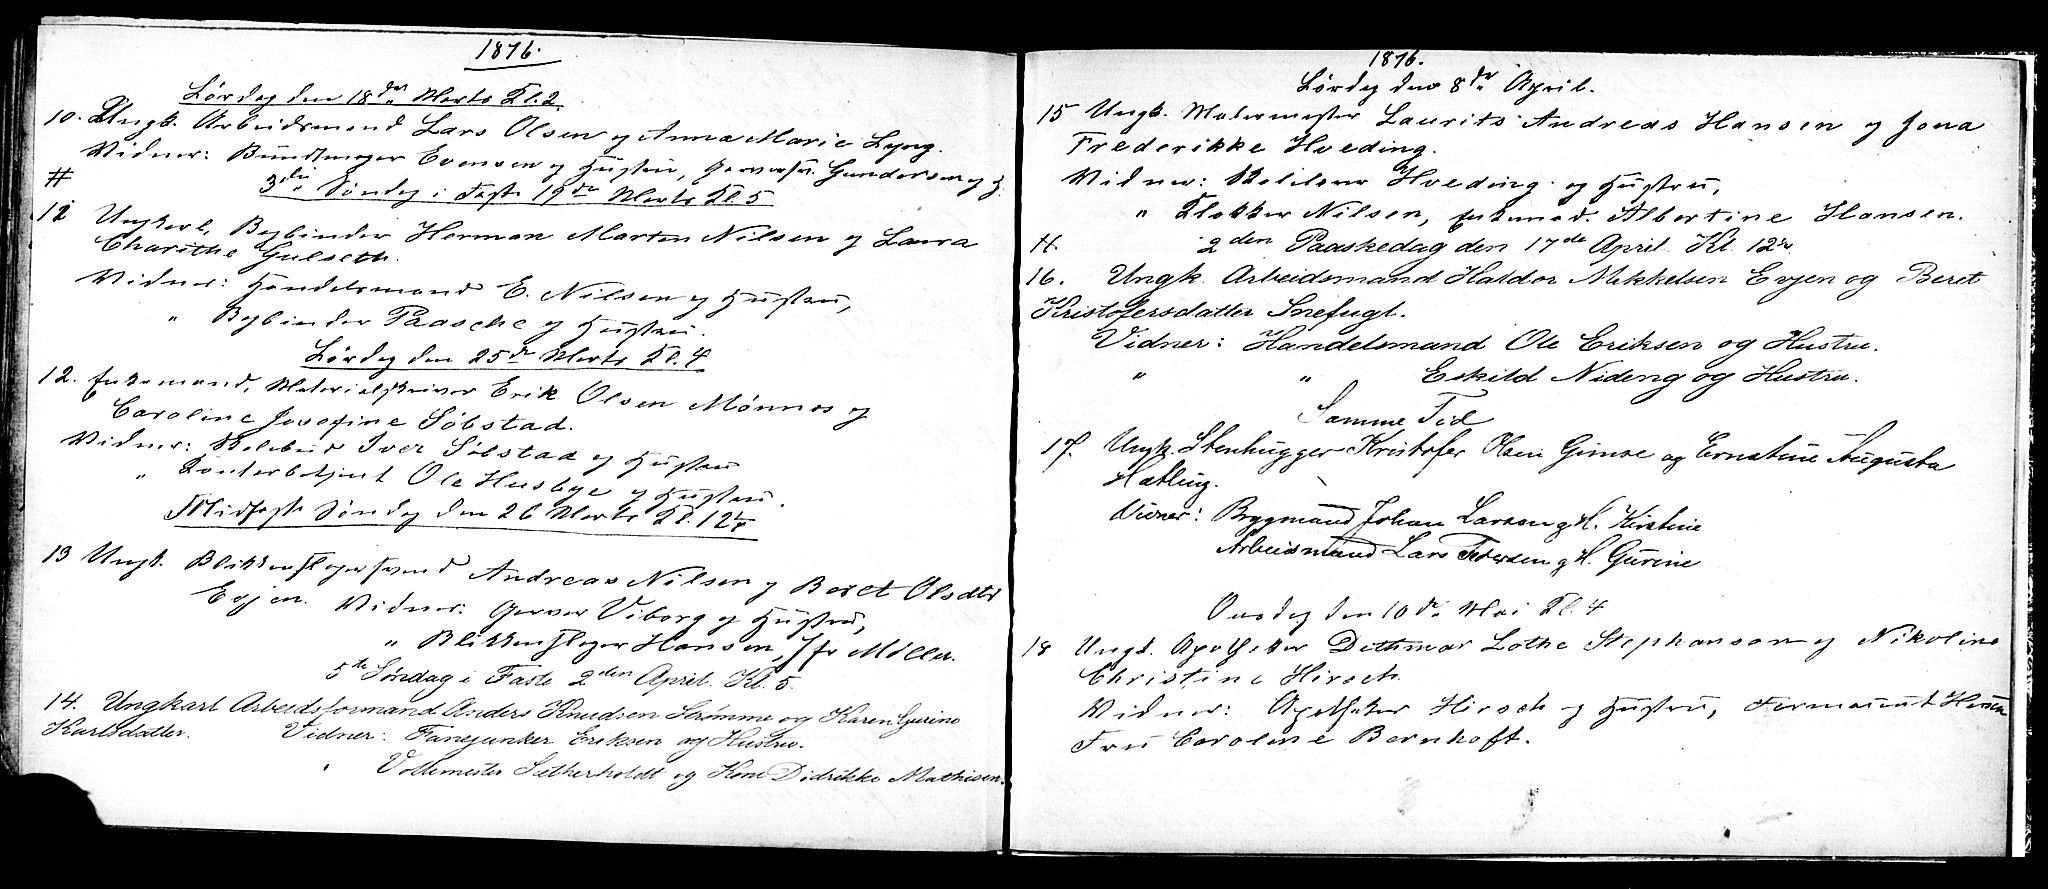 1876.
Lørdag den 18de Marts Kl. 2
10. Ungk. Arbeidsmand Lars Olsen og Anna Marie Lyng.
Vidner: Buntmager Evensen og Hustru, Garversv. Gundersen og H.
# 3die Søndag i Faste 19de Marts Kl. 5
12 Ungkarl, Bogbinder Herman Marten Nilsen og Laura
Charithe Gulseth.
Vidner: Handelsmand E. Nilsen og Hustru,
" Bogbinder Paasche og Hustru.
Lørdag den 25de Marts Kl. 4
12. Enkemand, Materialskriver Erik Olsen Mønnes og
Caroline Josefine Söbstad.
Vidner: Iver Söbstad og Hustru
" Kontorbetjent Ole Husbye og Hustru.
Midfaste Søndag den 26 Marts Kl. 12½
13 Ungk. Blikkenslagersvend Andreas Nilsen og Beret Olsdtr
Evjen. Vidner: Garver Viborg og Hustru,
" Blikkenslager Hansen, Jfr Möller.
5te Søndag i Faste 2den April. Kl. 5.
14. Ungkarl Arbeidsformand Anders Knudsen Strømme og Karen Gurine
Karlsdatter. Vidner: Fanejunker Eriksen og Hustru.
" Voltemester Sætherholdt og Kone Didrikke Mathisen.
1876.
Lørdag den 8de April.
15 Ungk. Malermester Laurits Andreas Hansen og Jona
Frederikke Hveding.
Vidner: Hveding og Hustru,
" Klokker Nilsen, Enkemad. Albertine Hansen.
# 2den Paaskedag den 17de April. Kl. 12½
16. Ungk. Arbeidsmand Haldor Mikkelsen Evjen og Beret
Kristofersdatter Snefugl.
Vidner: Handelsmand Ole Eriksen og Hustru.
" " Eskild Nideng og Hustru.
Samme Tid
17. Ungk. Stenhugger Kristofer Olsen Gimse og Ernstine Augusta
Hatling.
Vidner: Brygmand Johan Larsen og H. Kirstine
Arbeidsmand Lars Pedersen og H. Gurine
Onsdag den 10de Mai Kl. 4
18 Ungk. Apotheker Dethmar Lothe Stephanson og Nikoline
Christine Hirsch.
Vidner: Apotheker Hirsch og Hustru, Hansen
Fru Caroline Bernhoft.